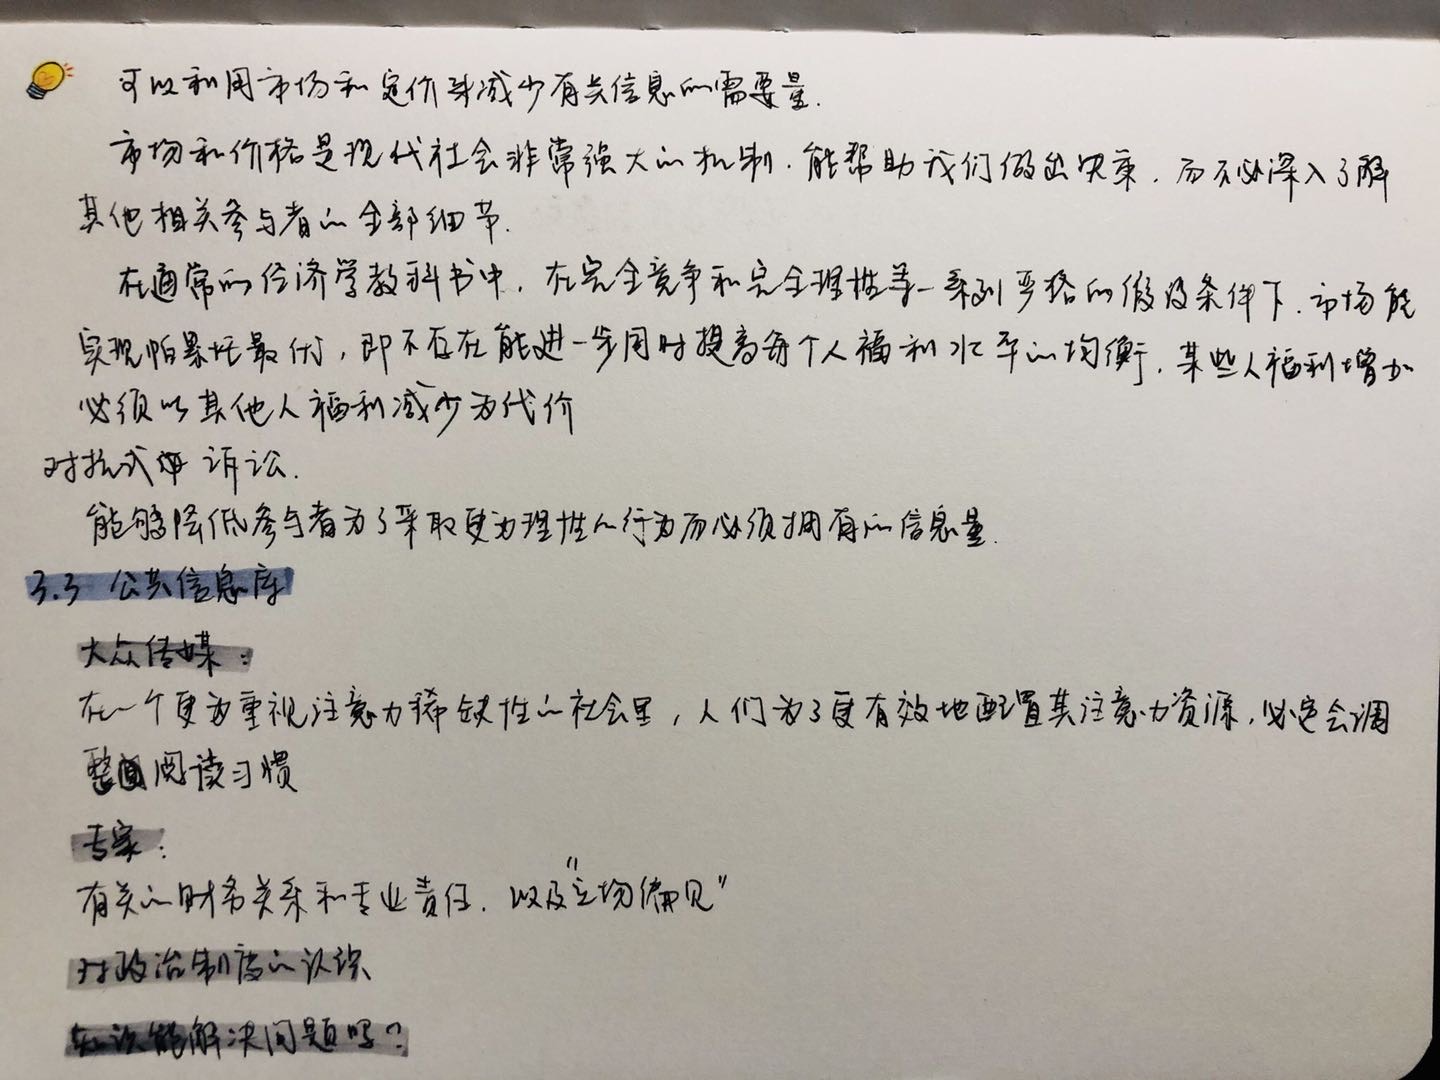 可以利用市场和定价来减少有关信息的需要量.
市场和价格是现代社会非常强大的机制.能帮助我们做出决策.而不必深入了解
其他相关参与者的全部细节.
在通常的经济学教科书中,在完全竞争和完全理性等一系列严格的假设条件下.市场能
实现帕累托最优,即不存在能进一步同时提高每个人福利水平的均衡.某些人福利增加
必须以其他人福利减少为代价
对抗式 诉讼.
能够降低参与者为了采取更为理性的行为而必须拥有的信息量.
3.3 公共信息库
大众传媒:
在一个更为重视注意力稀缺性的社会里,人们为了更有效地配置其注意力资源,必定会调
整 阅读习惯
专家:
有关的财务关系和专业责任.以及"立场偏见"
对政治制度的认识
知识能解决问题吗?